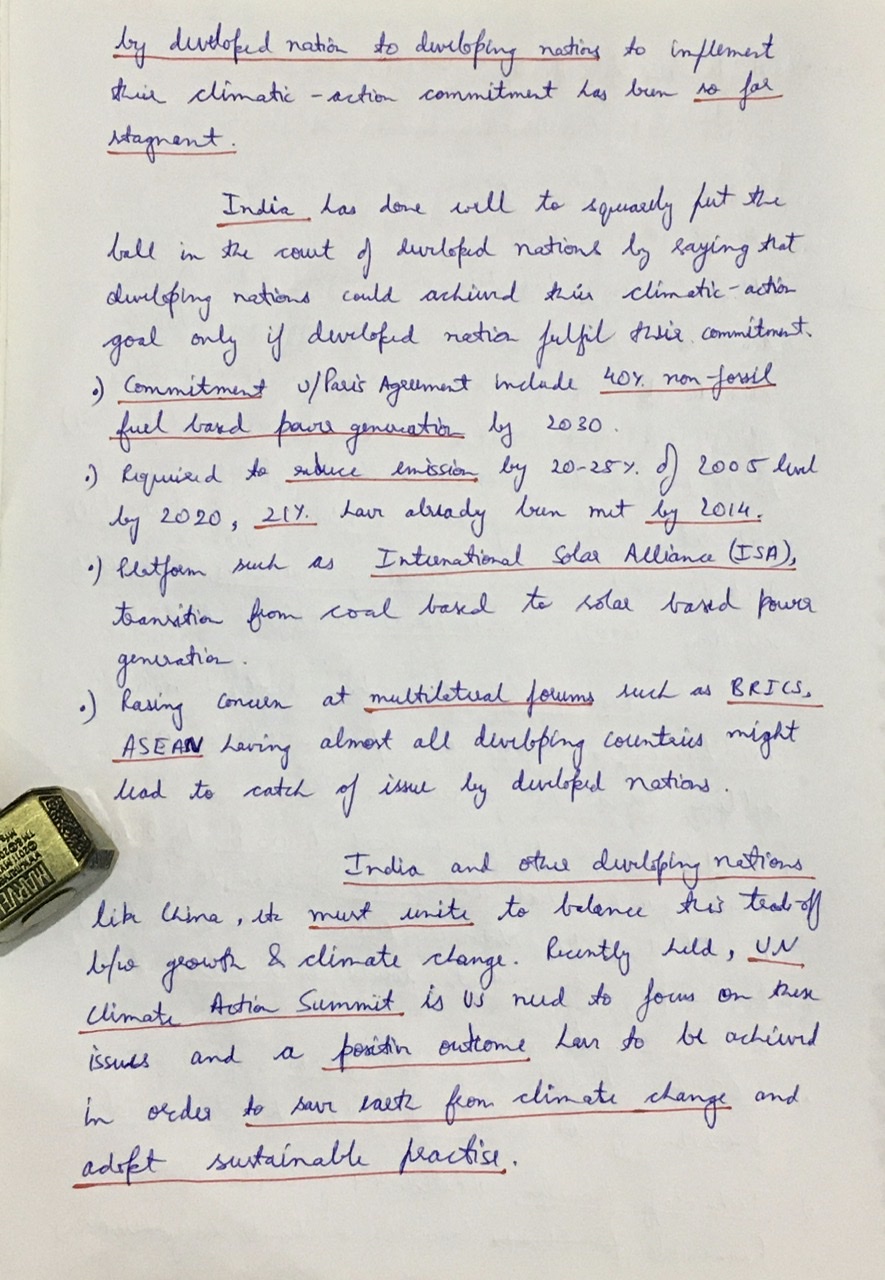 by developed nation to developing nations to implement
their climatic-action commitment has been so far
stagnent.
India has done well to squarely put the
ball in the court of developed nations by saying that
developing nations could achieved their climatic-action
goal only if developed nation fulfil their commitment.
•) Commitment u/Paris Agreement include 40% non-fossil
fuel based power generation by 2030.
•) Required to reduce emission by 20-25% of 2005 level
by 2020, 21% have already been met by 2014.
•) Platform such as International Solar Alliance (ISA),
transition from coal based to solar based power
generation.
•) Rasing concern at multilateral forums such as BRICS,
ASEAN having almost all developing countries might
lead to catch of issue by developed nations.
India and other developing nations
like China, etc must unite to balance this trade-off
b/w growth & climate change. Recently held, UN
Climate Action Summit is US need to focus on these
issues and a positive outcome have to be achieved
in order to save earth from climate change and
adopt sustainable practise.
MARVEL